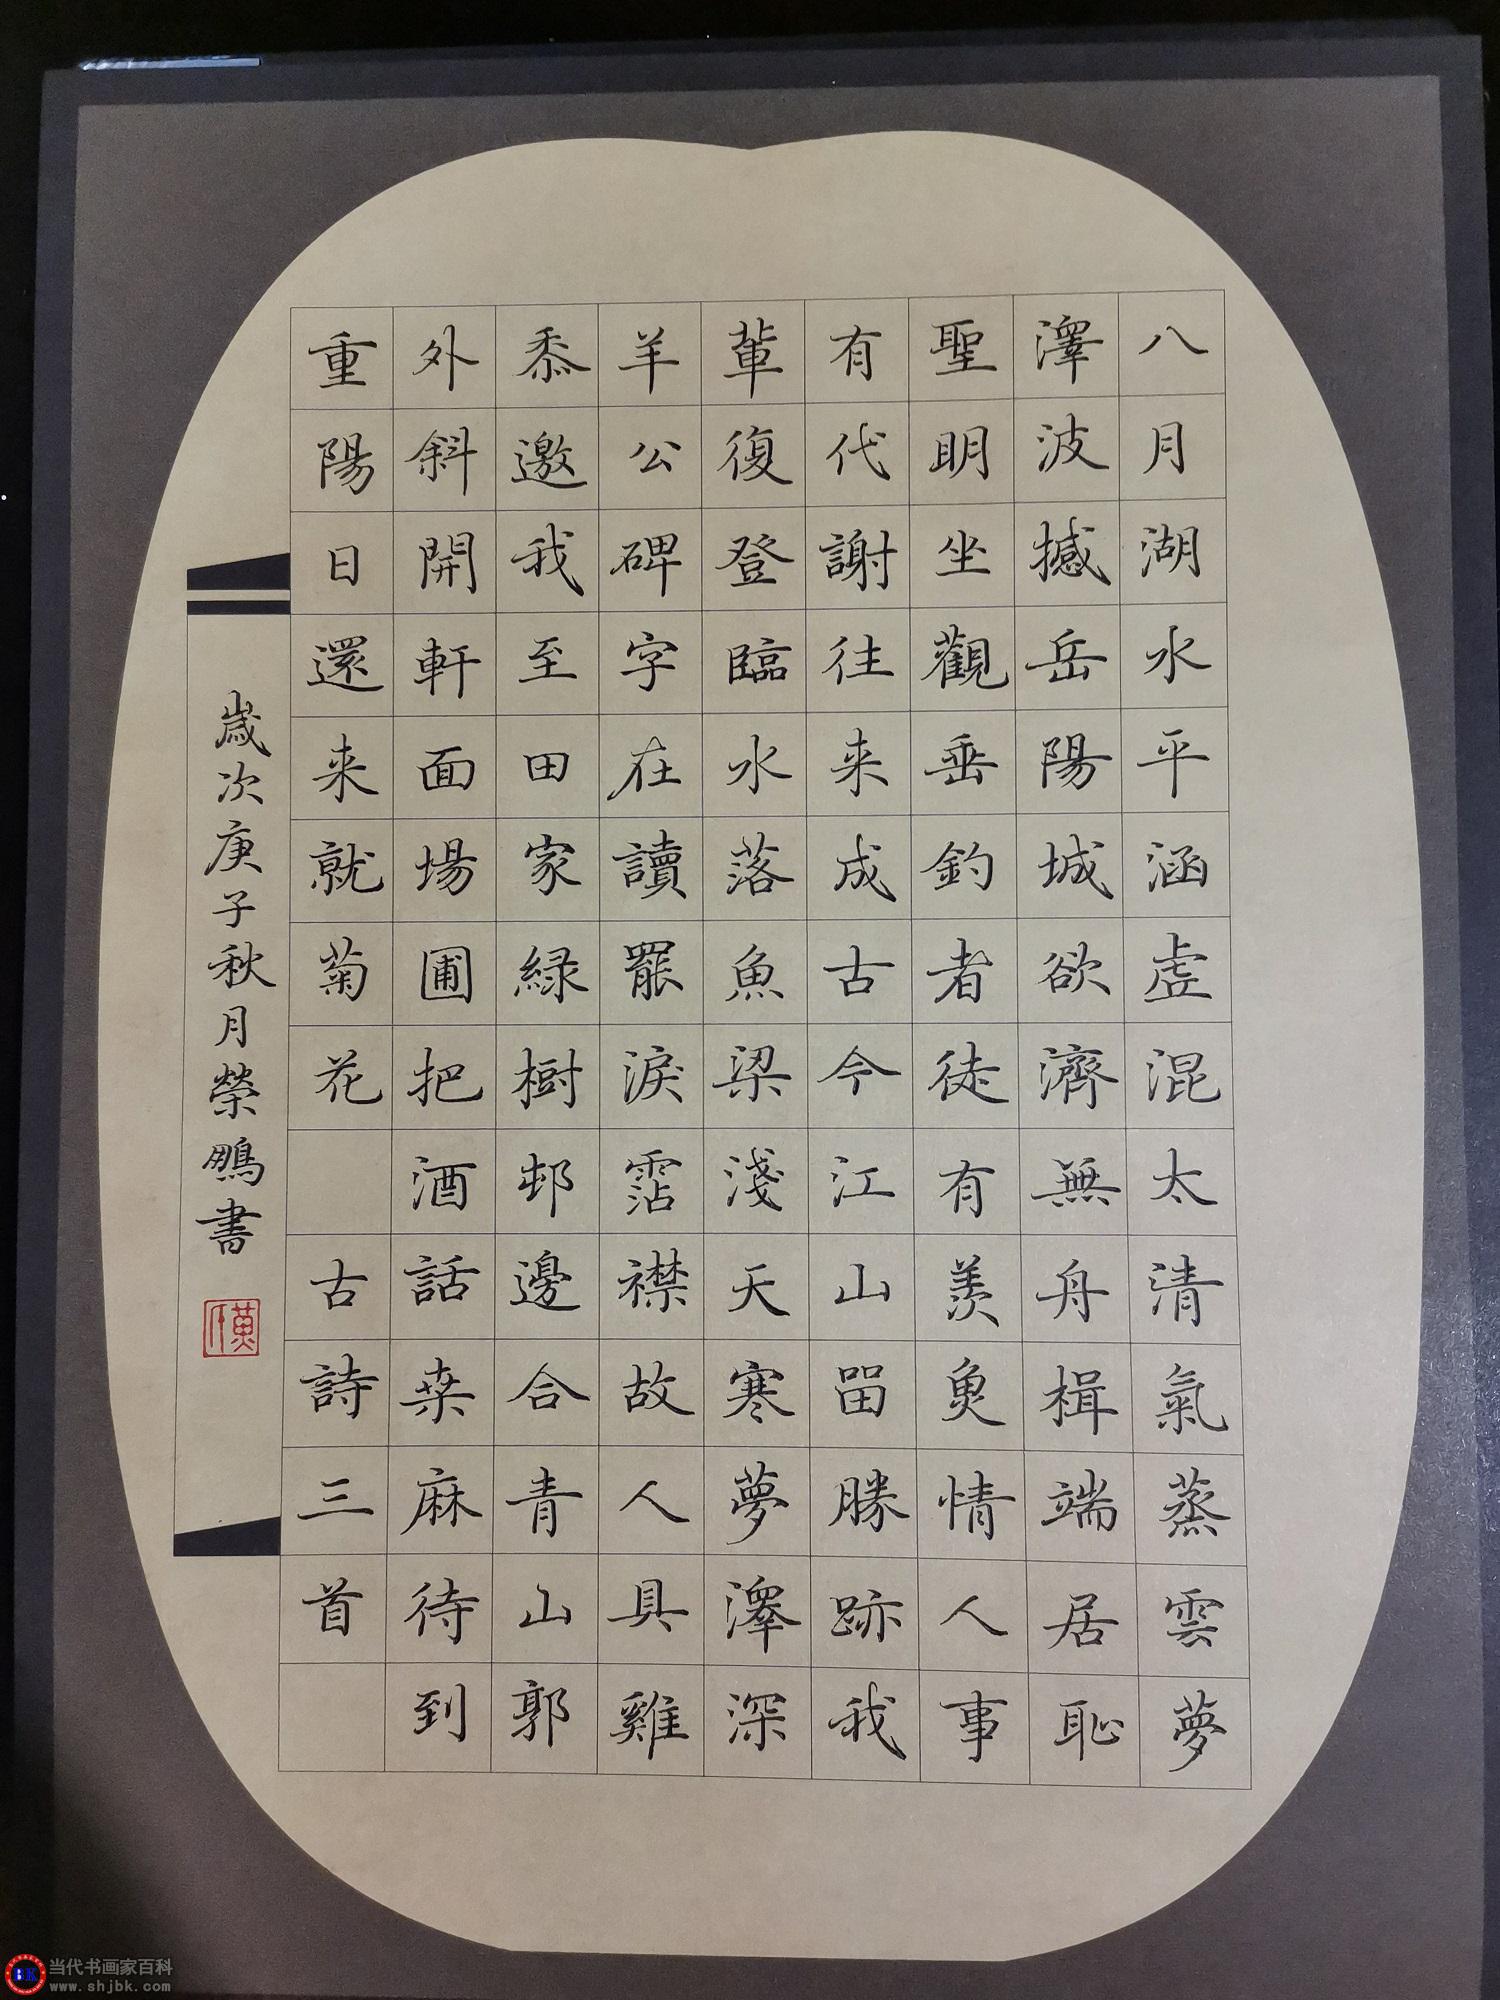 八月湖水平涵虛混太清氣蒸雲夢
澤波撼岳陽城欲濟無舟楫端居恥
聖明坐觀垂釣者徒有羨魚情人事
有代謝往来成古今江山留勝跡我
輩復登臨水落魚梁淺天寒夢澤深
羊公碑字在讀罷淚霑襟故人具雞
黍邀我至田家緑樹邨邊合青山郭
外斜開軒面場圃把酒話桒麻待到
重陽日還来就菊花 古詩三首
歲次庚子秋月榮鵬書
当代书画家百科
www.shjbk.com
BK